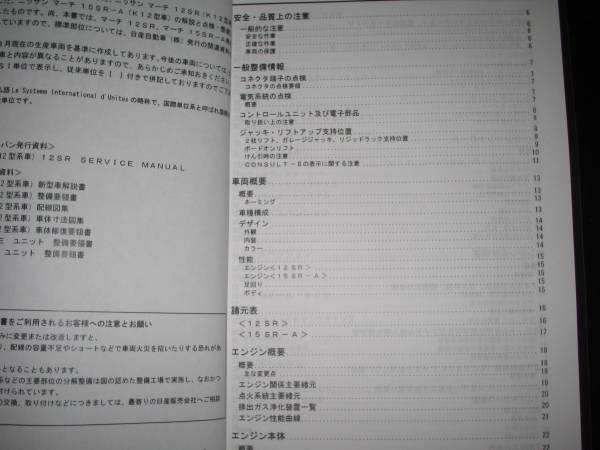 ニッサン マーチ 12SR(K12
15SR-A(K12型車)の解説と点検・整備
たものです。尚、本書では、マーチ 12SR、マーチ 15SR-A
ていますので、標準部位については、日産自動車(株)発行の関連資料
月現在の生産車両を基準に作成してあります。今後の車両については、
車と内容が異なることがありますので、あらかじめご承知おきください。
SI単位で表示し、従来単位を{ }付きで併記しておりますのでご
語Le Systeme International d'Unitesの略称で、国際単位系と呼ばれ
単位です。
パン発行資料>
2型系車)12SR SERVICE MANUAL
資料>
2型系車)新型車解説書
2型系車)整備要領書
2型系車)配線図集
2型系車)車体寸法図集
2型系車)車体修復要領書
ユニット 整備要領書
ユニット 整備要領書
書をご利用されるお客様への注意とお願い
みに変更または改造しますと、
り、配線の容量不足やショートなどで車両火災を招いたりする恐れがあ
となることもあります。
系などの主要部位の分解整備は国の認めた整備工場で実施し、なおかつ
付けられています。
の交換、取り付けなどにつきましては、最寄りの日産販売会社へご相談
安全・品質上の注意 6
一般的な注意 6
安全な作業 6
正確な作業 6
車両の保護 6
一般整備情報 7
コネクタ端子の点検 7
コネクタの点検要領 7
電気系統の点検 7
概要 7
コントロールユニット及び電子部品 8
取り扱い上の注意 8
ジャッキ・リフトアップ支持位置 8
2柱リフト、ガレージジャッキ、リジッドラック支持位置 8
ボードオンリフト 9
けん引時の注意 10
CONSULT-Ⅱの表示に関する注意 11
車両概要 13
概要 13
ネーミング 13
車種構成 13
デザイン 14
外観 14
内装 14
カラー 14
性能 15
エンジン<12SR> 15
エンジン<15SR-A> 15
足回り 15
ボディ 15
諸元表 16
<12SR> 16
<15SR-A> 17
エンジン概要 18
概要 18
主な変更点 18
エンジン関係主要諸元 19
点火系統主要諸元 20
排出ガス浄化装置一覧 20
エンジン性能曲線 21
エンジン本体 22
概要 22